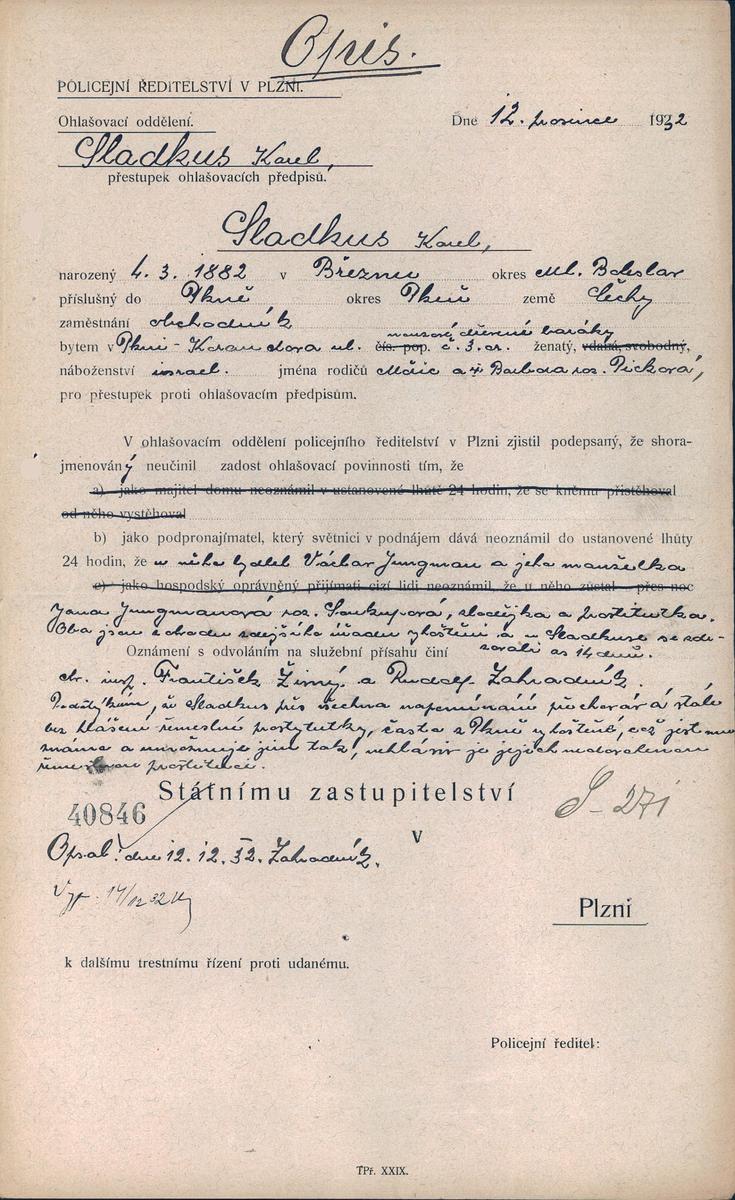 Opis.
POLICEJNÍ ŘEDITELSTVÍ V PLZNI.
Ohlašovací oddělení.
Dne 12. prosince 1932
Sladkus Karel,
přestupek ohlašovacích předpisů.
Sladkus Karel,
narozený 4. 3. 1882 v Březnu okres Ml. Boleslav
příslušný do Plzně okres Plzeň země Čechy
zaměstnání obchodník
nouzové dřevené baráky
bytem v Plzni - Korandova ul. čís. pop. č. 3. or. ženatý, vdaná, svobodný,
náboženství israel. jména rodičů Móric a Barbora roz. Picková,
pro přestupek proti ohlašovacím předpisům.
V ohlašovacím oddělení policejního ředitelství v Plzni zjistil podepsaný, že shora-
jmenovaný neučinil zadost ohlašovací povinnosti tím, že
a) jako majitel domu neoznámil v ustanovené lhůtě 24 hodin, že se kněmu přistěhoval
od něho vystěhoval
b) jako podpronajímatel, který světnici v podnájem dává neoznámil do ustanovené lhůty
24 hodin, že u něho bydlel Václav Jungman a jeho manželka
c) jako hospodský oprávněný přijímati cizí lidi neoznámil, že u něho zůstal přes noc
Jana Jungmanová roz. Soukupová, zlodějka a prostitutka.
Oba jsou z obvodu zdejšího úřadu vyhoštěni a u Sladkuse se zdr-
žovali as 14 dnů.
Oznámení s odvoláním na služební přísahu činí
str. insp. František Zirný a Rudolf Zahradník.
Podotýkám, že Sladkus přes všechna napomínání přechovává stále
bez hlášení řemeslné prostytutky, často z Plzně vyhoštěné, což jest mu
známo a umožňuje jim tak, nehlásiv je jejich nedovolenou
řemeslnou prostituci.
Státnímu zastupitelství
40846
S - 271
v
Opsal: dne 12. 12. 32. Zahradník.
Vyp. 14/12 32
Plzni
k dalšímu trestnímu řízení proti udanému.
Policejní ředitel:
TPř. XXIX.